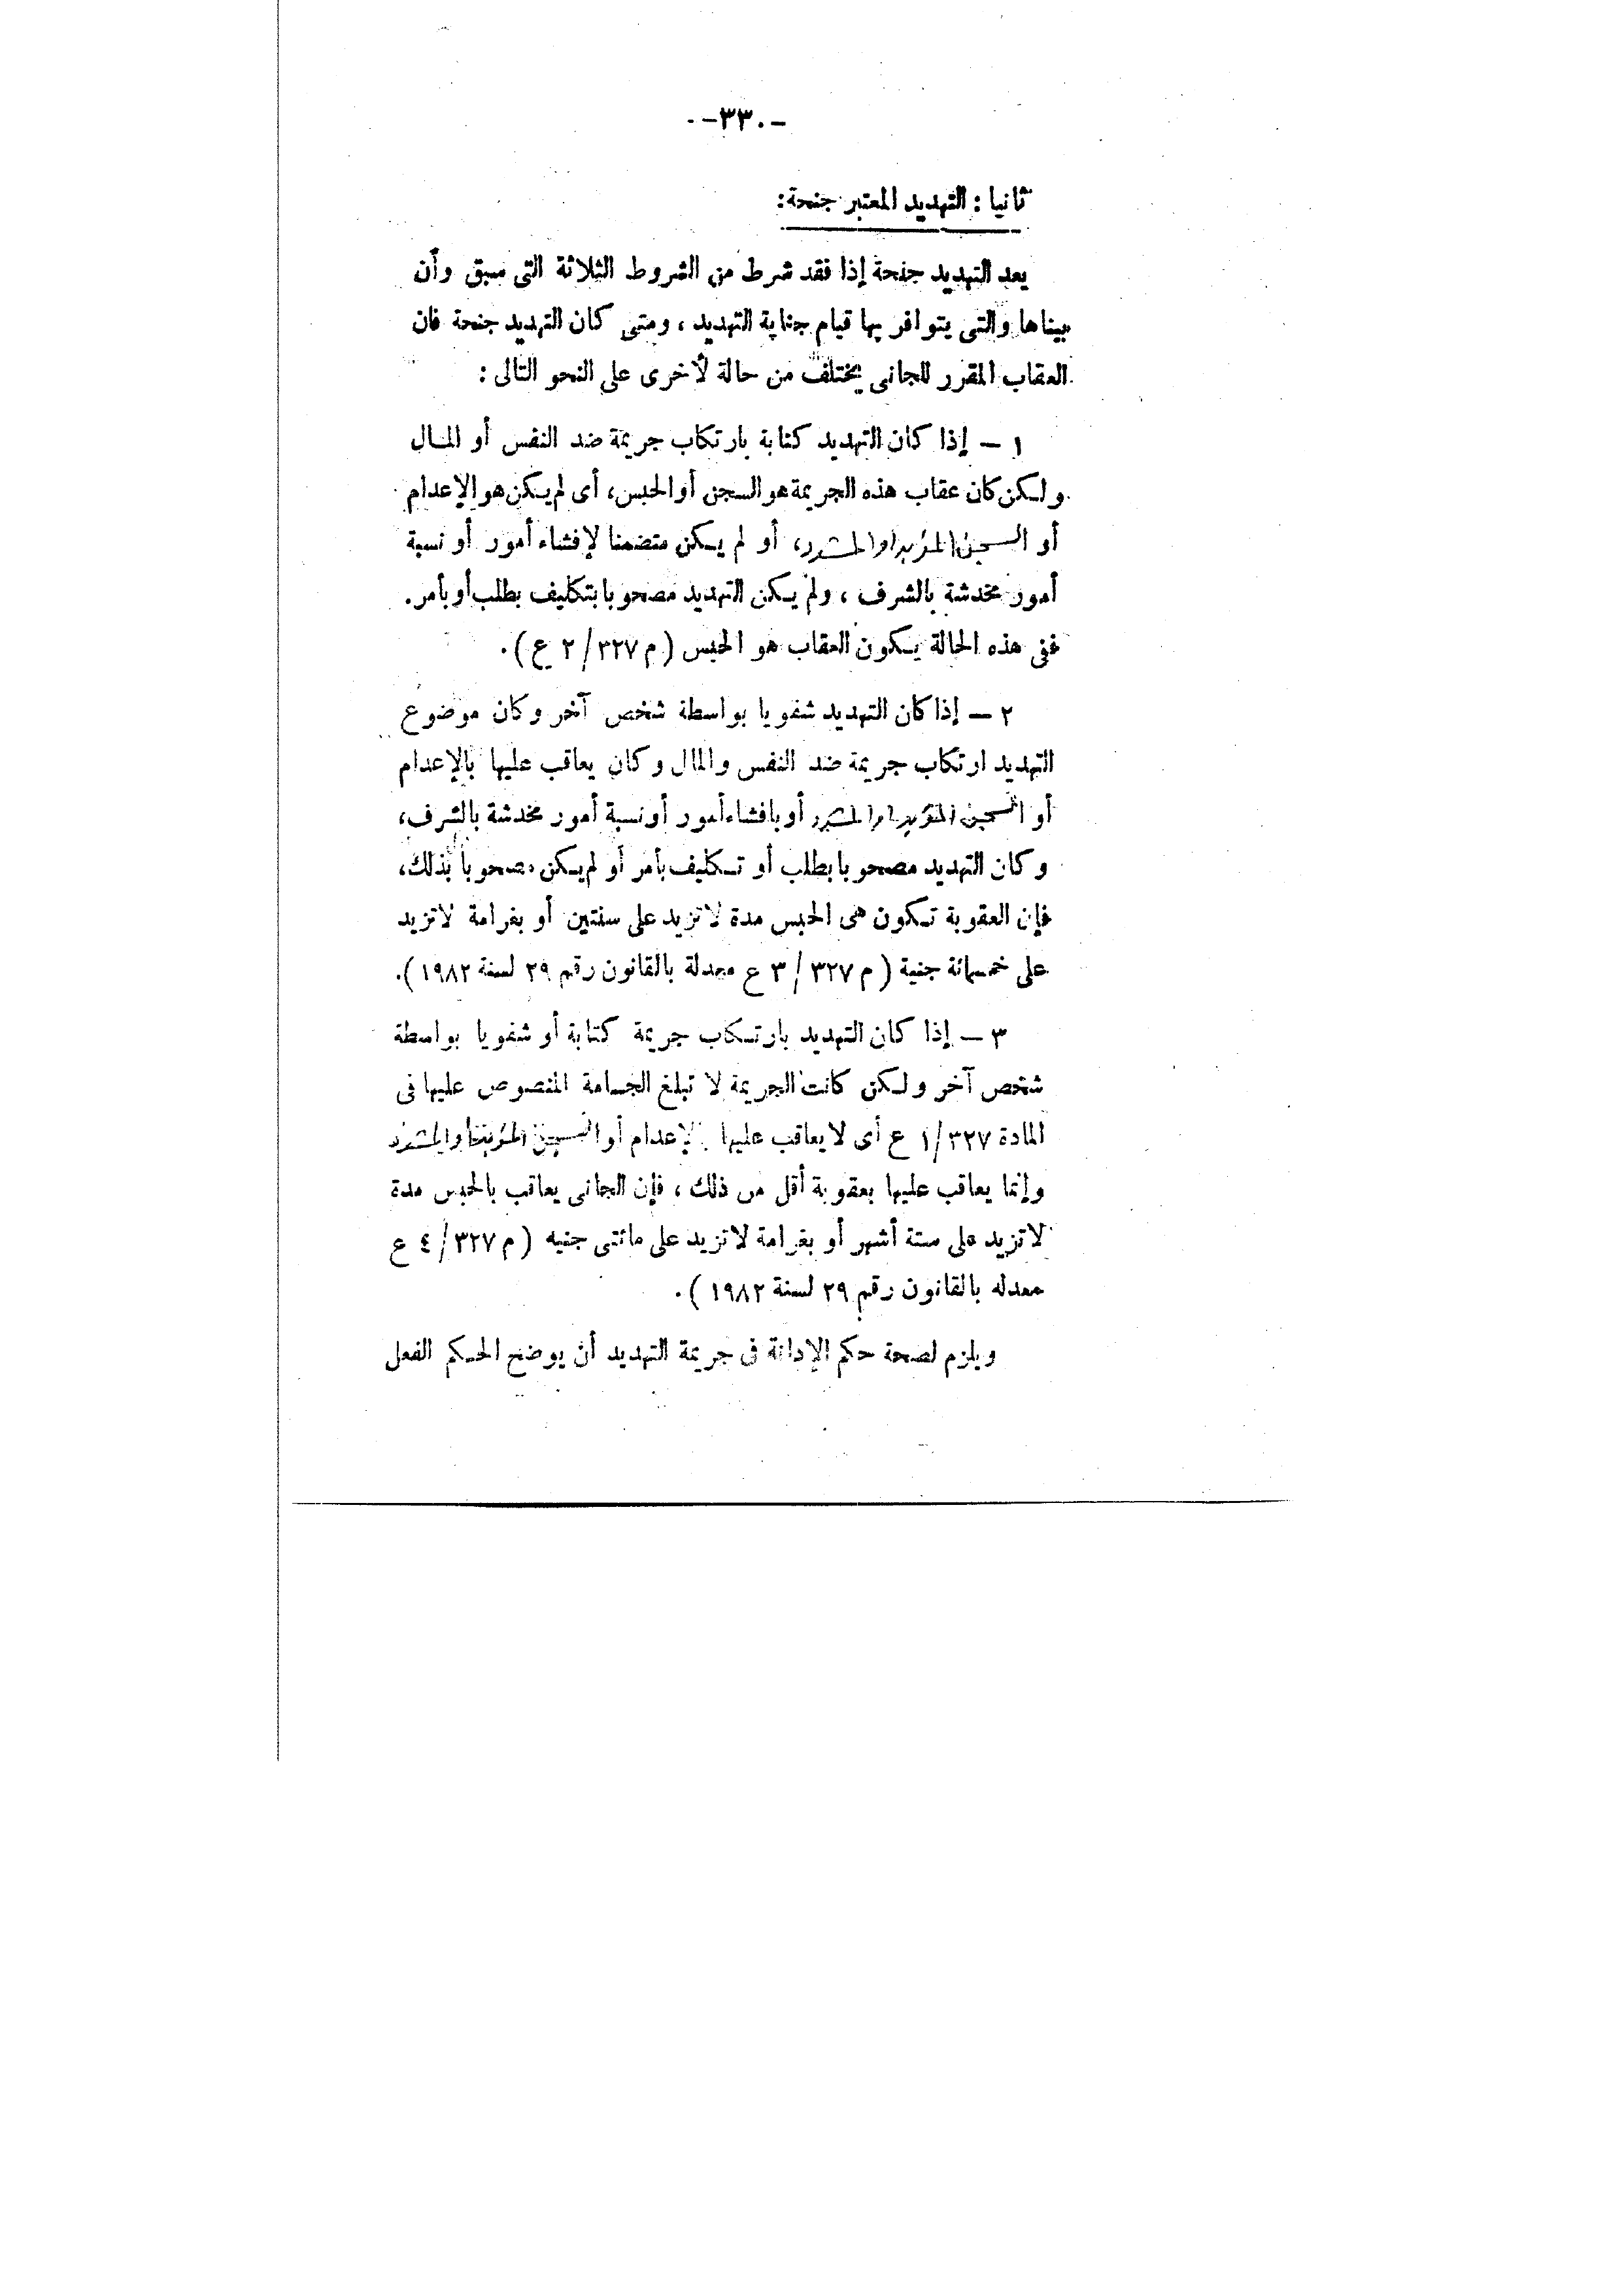 -٣٣٠-
ثانيا : التهديد المعتبر جنحة:
يعد التهديد جنحة إذا فقد شرط من الشروط الثلاثة التى سبق وأن
بيناها والتى يتوافر بها قيام جناية التهديد ، ومتى كان التهديد جنحة فان
العقاب المقرر للجانى يختلف من حالة لأخرى على النحو التالى :
١ – إذا كان التهديد كتابة بارتكاب جريمة ضد النفس أو المال
ولكن كان عقاب هذه الجريمة هو السجن أو الحبس، أى لم يكن هو الإعدام
أو السجن المؤبد او المشدد، أو لم يكن متضمنا لإفشاء أمور أو نسبة
أمور مخدشة بالشرف ، ولم يكن التهديد مصحوبا بتكليف بطلب أو بأمر.
ففى هذه الحالة يكون العقاب هو الحبس (م ٣٢٧/ ٢ ع ) .
٢ – إذا كان التهديد شفويا بواسطة شخص آخر وكان موضوع
التهديد ارتكاب جريمة ضد النفس والمال وكان يعاقب عليها بالإعدام
أو السجن المؤبد او المشدد أو بافشاء أمور أو نسبة أمور مخدشة بالشرف،
وكان التهديد مصحوبا بطلب أو تكليف بأمر أو لم يكن مصحوبا بذلك،
فإن العقوبة تكون هى الحبس مدة لا تزيد على سنتين أو بغرامة لا تزيد
على خمسمائة جنية ( م ٣٢٧/ ٣ ع معدلة بالقانون رقم ٢٩ لسنة ١٩٨٢ ).
٣ – إذا كان التهديد بارتكاب جريمة كتابة أو شفويا بواسطة
شخص آخر ولكن كانت الجريمة لا تبلغ الجسامة المنصوص عليها فى
المادة ٣٢٧/ ١ ع أى لا يعاقب عليها بالإعدام أو السجن المؤبد او المشدد
وإنما يعاقب عليها بعقوبة أقل من ذلك ، فإن الجانى يعاقب بالحبس مدة
لا تزيد على ستة أشهر أو بغرامة لا تزيد على مائتى جنيه ( م ٣٢٧/ ٤ ع
معدله بالقانون رقم ٢٩ لسنة ١٩٨٢ ) .
ويلزم لصحة حكم الإدانة فى جريمة التهديد أن يوضح الحكم الفعل